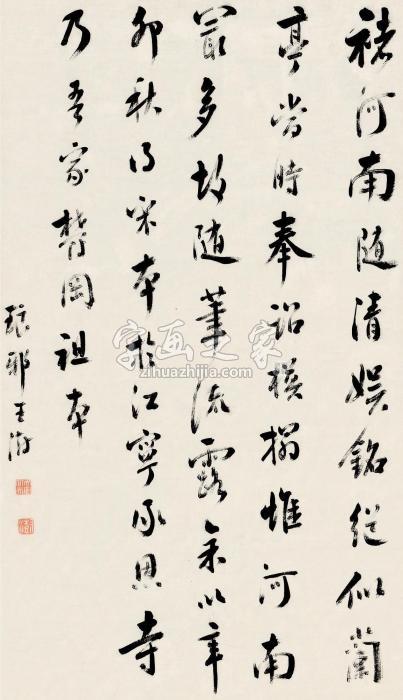 褚河南随清娱铭従似兰
亭当时奉诏模搨惟河南
最多故随笔流露余以辛
卯秋得宋本於江宁承恩寺
乃吾家郁冈祖本
琅邪王澍
字画之家
zihuazhijia.com